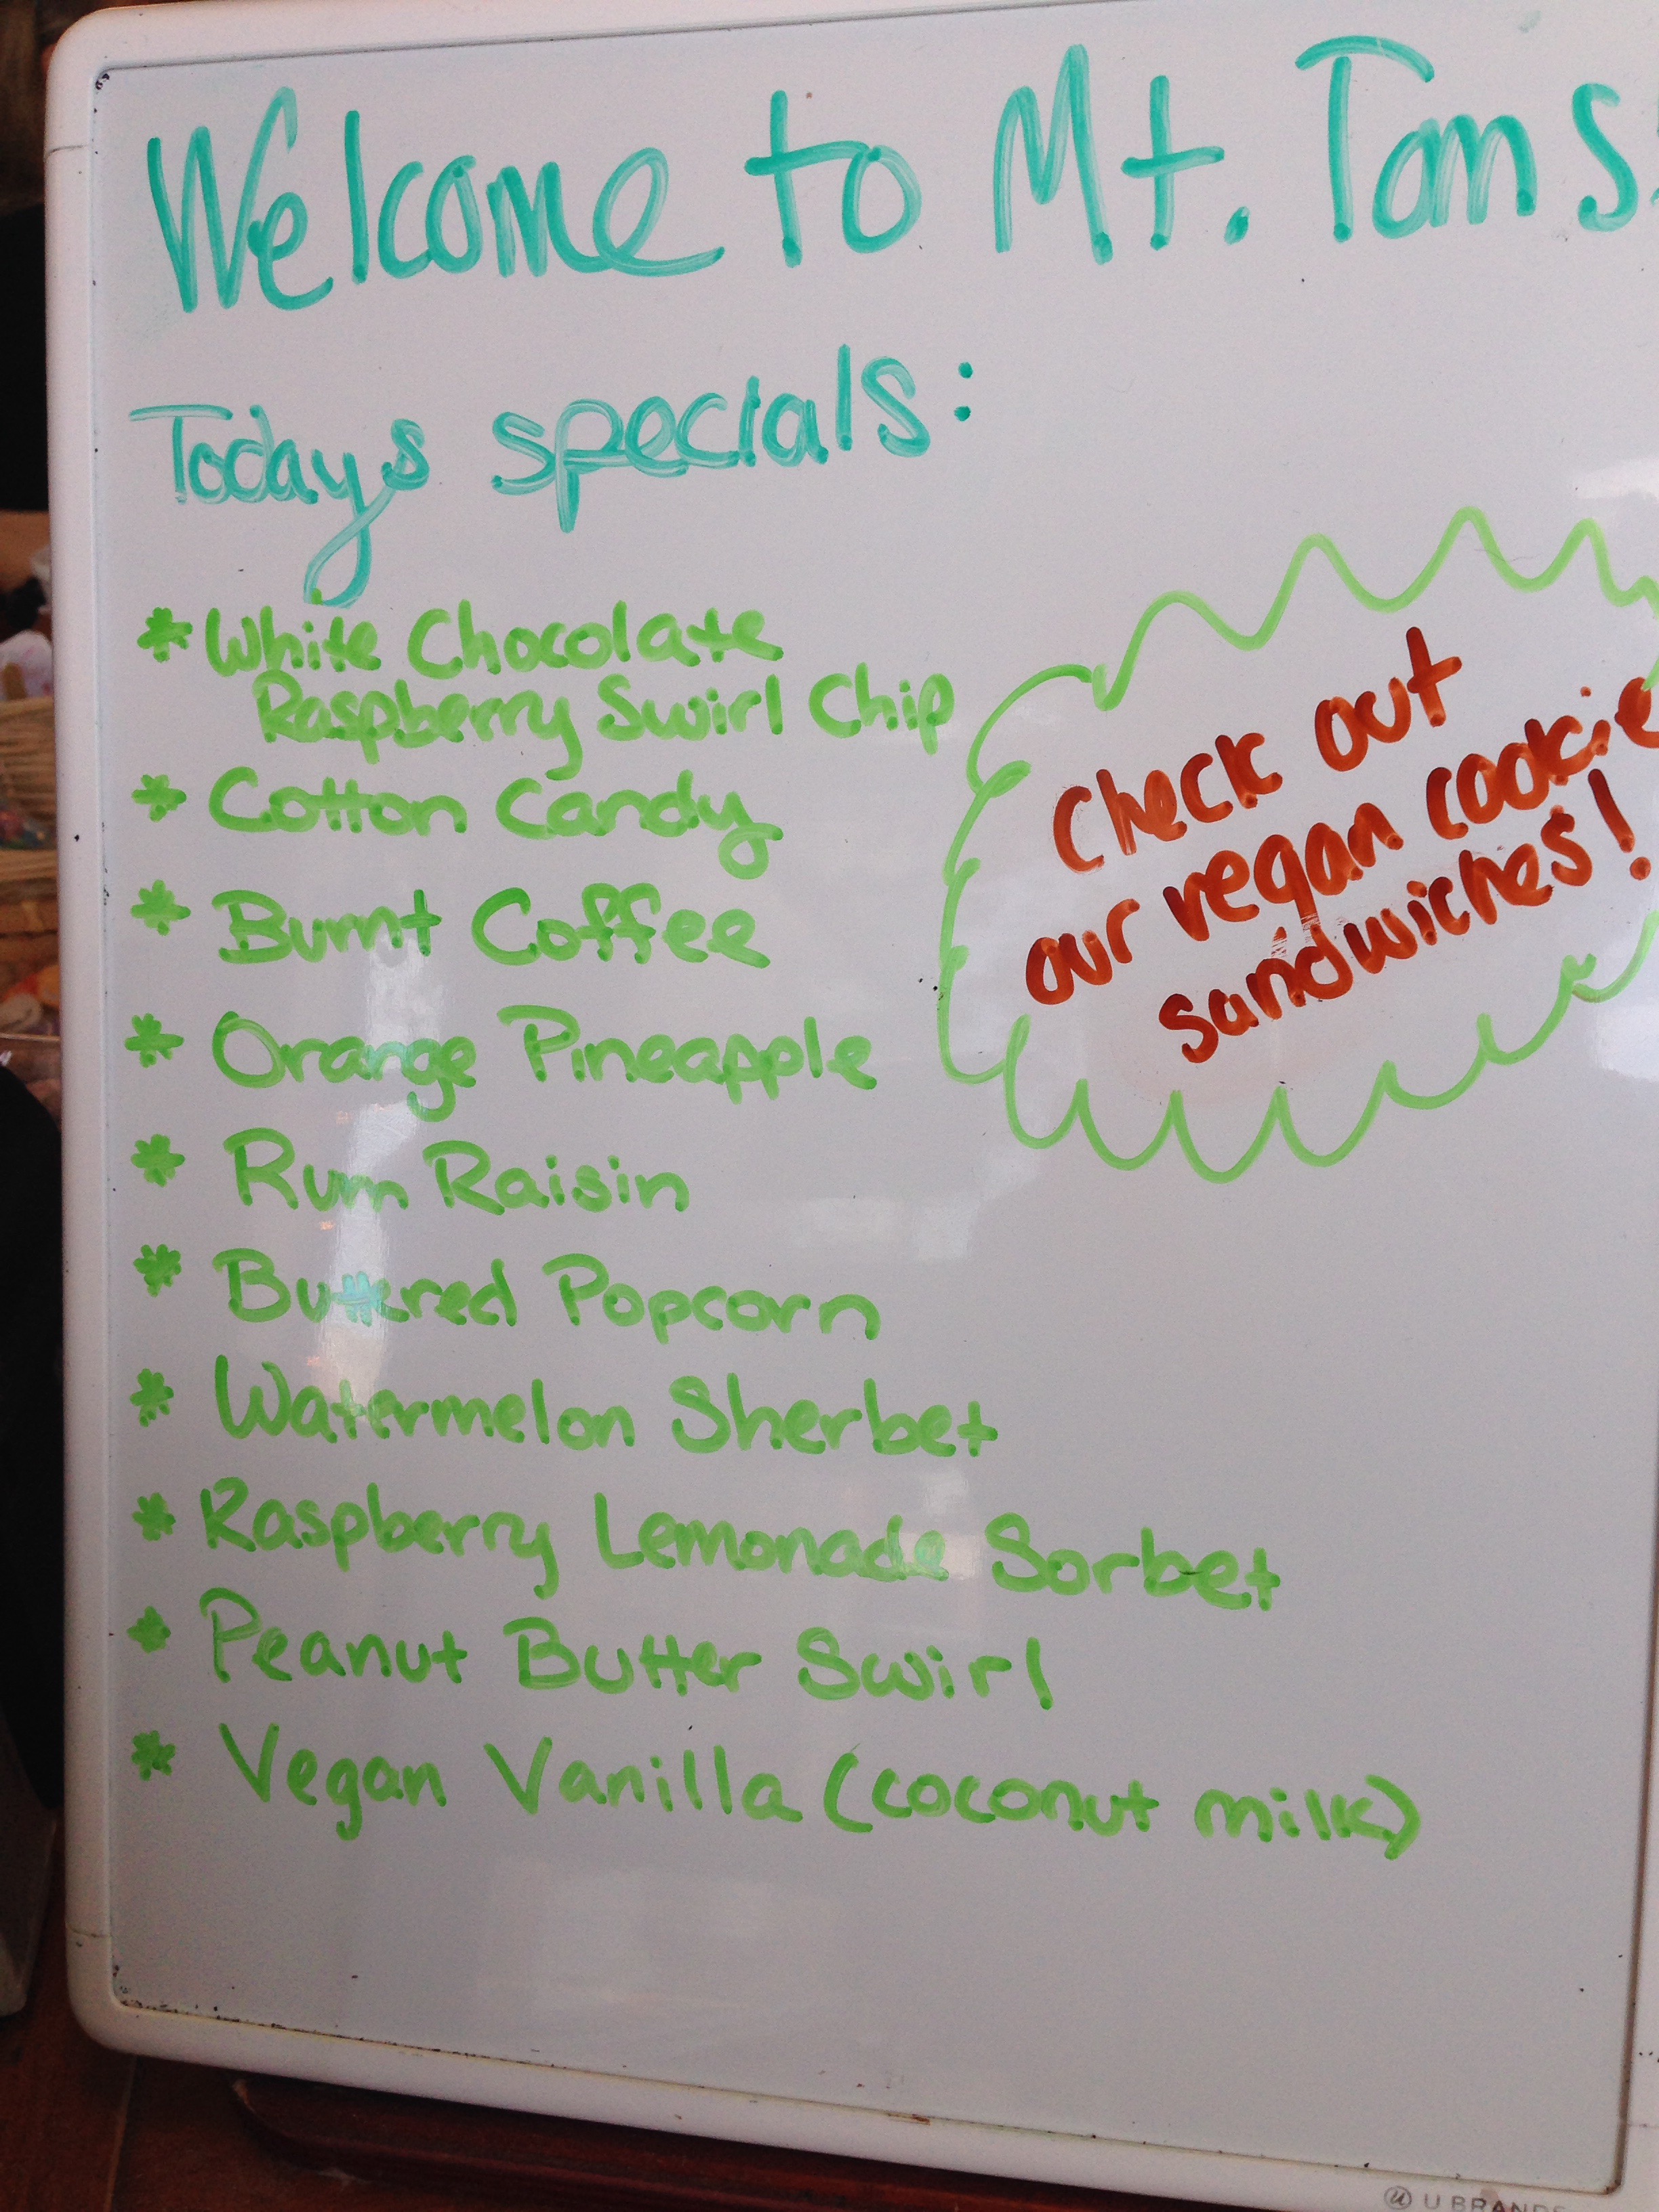 Welcome to Mt. Toms!
Todays specials:
* White Chocolate
Raspberry Swirl Chip
* Cotton Candy
* Burnt Coffee
* Orange Pineapple
* Rum Raisin
* Buttered Popcorn
* Watermelon Sherbet
* Raspberry Lemonade Sorbet
* Peanut Butter Swirl
* Vegan Vanilla (coconut milk)
Check out
our vegan cookie
sandwiches!
U BRANDS